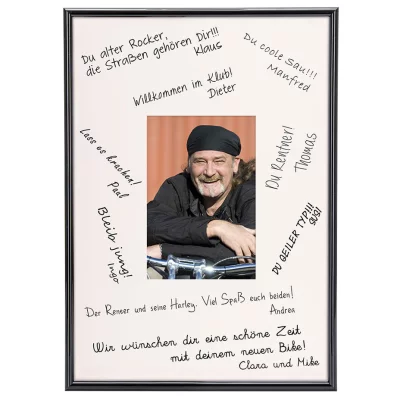 Du alter Rocker,
die Straßen gehören Dir!!!
Klaus
Du coole Sau!!!
Manfred
Willkommen im Klub!
Dieter
Lass es krachen!
Paul
Du Rentner!
Thomas
Bleib jung!
Ingo
DU GEILER TYP!!!
SUSI
Der Renner und seine Harley. Viel Spaß euch beiden!
Andrea
Wir wünschen dir eine schöne Zeit
mit deinem neuen Bike!
Clara und Mike